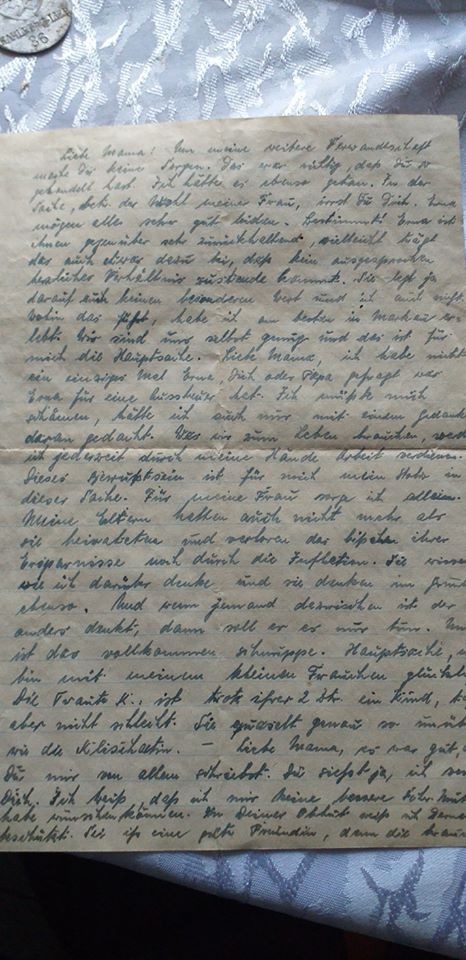 38
Liebe Mama! Um meine weitere Verwandtschaft
mache Dir keine Sorgen. Das war richtig, daß Du so
gehandelt hast. Ich hätte es ebenso getan. In der
Sache, betr. der Wahl meiner Frau, irrst Du Dich. Erna
mögen alle sehr gut leiden. Bestimmt! Erna ist
ihnen gegenüber sehr zurückhaltend, vielleicht trägt
das auch etwas dazu bei, daß kein ausgesprochen
herzliches Verhältnis zustande kommt. Sie legt ja
darauf auch keinen besonderen Wert und ich auch nicht.
Wohin das führt, habe ich am besten in er-
lebt. Wir sind uns selbst genug und das ist für
mich die Hauptsache. Liebe Mama, ich habe nicht
ein einziges Mal Erna, Dich oder Papa gefragt was
Erna für eine Aussteuer hat. Ich müßte mich
schämen, hätte ich auch nur mit einem Gedanken
daran gedacht. Was wir zum Leben brauchen, werde
ich jederzeit durch meine Hände Arbeit verdienen.
Dieses Bewußtsein ist für mich mein in
dieser Sache. Für meine Frau sorge ich allein.
Meine Eltern hatten auch nicht mehr als
sie heirateten und verloren das bißchen ihrer
Ersparnisse noch durch die Inflation. Sie wissen
wie ich darüber denke und sie denken im Grunde
ebenso. Und wenn jemand dazwischen ist der
anders denkt, dann soll er es nur tun.
ist das vollkommen schnuppe. Hauptsache,
bin mit meinem kleinen Frauchen glücklich
Die Traute K., ist trotz ihrer 2 ein Kind,
aber nicht schlecht. Sie genau so
wie die — Liebe Mama, es war gut,
Du mir von allem schriebst. Du siehst ja, ich
Dich. Ich weiß, daß ich mir keine bessere
habe wünschen können. In Deiner Obhut weiß ich
beschützt. Sei ihr eine gute Freundin, denn die